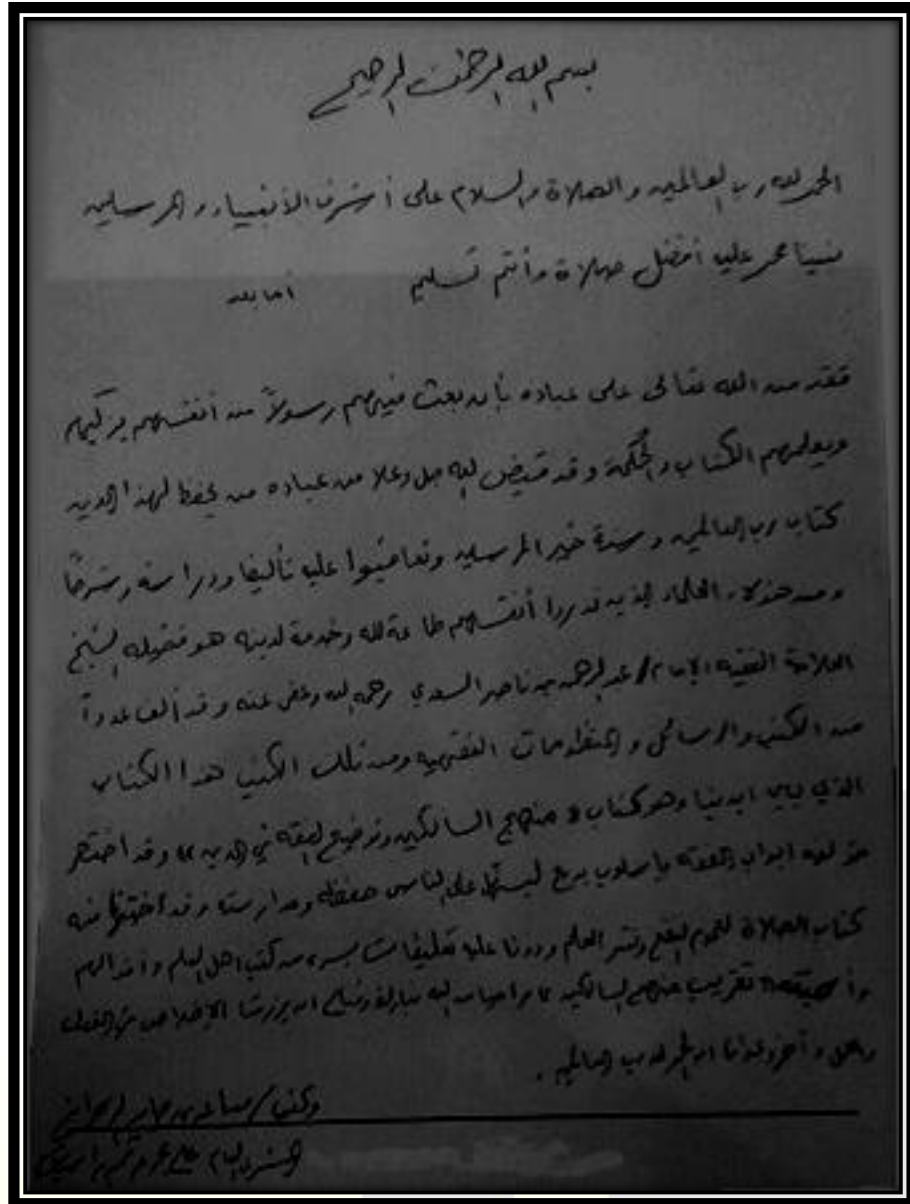 بسم الله الرحمن الرحيم
الحمد لله رب العالمين والصلاة والسلام على أشرف الأنبياء والمرسلين
نبينا محمد عليه أفضل صلاة وأتم تسليم أما بعد
فقد من الله تعالى على عباده بأن بعث فيهم رسولاً من أنفسهم يزكيهم
ويعلمهم الكتاب والحكمة وقد قيض الله جل وعلا من عباده من يحفظ لهذا الدين
كتاب رب العالمين وسنة خير المرسلين وتعاقبوا عليه تأليفا ودراسة وشرحاً
ومن هؤلاء العلماء الذين قد أنفسهم طاعة لله وخدمة لدينه هو فضيلة الشيخ
العلامة الفقيه الإمام / عبدالرحمن بن ناصر السعدي رحمه الله وعفى عنه وقد ألف عدداً
من الكتب والرسائل والمنظومات الفقهية ومن تلك الكتب هذا الكتاب
الذي بين ايدينا وهو كتاب « منهج السالكين وتوضيح الفقه في الدين » وقد اختصر
مؤلفه ابواب الفقه بأسلوب بديع ليسهل على الناس حفظه ومدارسته وقد اختر منه
كتاب الصلاة لعموم النفع ونشر العلم وزدنا عليه تعليقات من كتب اهل العلم واقوالهم
تقريب منهج السالكين الله تبارك وتعالى ان يرزقنا الإخلاص في القول
والعمل وآخر دعوانا ان الحمد لله رب العالمين .
وكتبه /